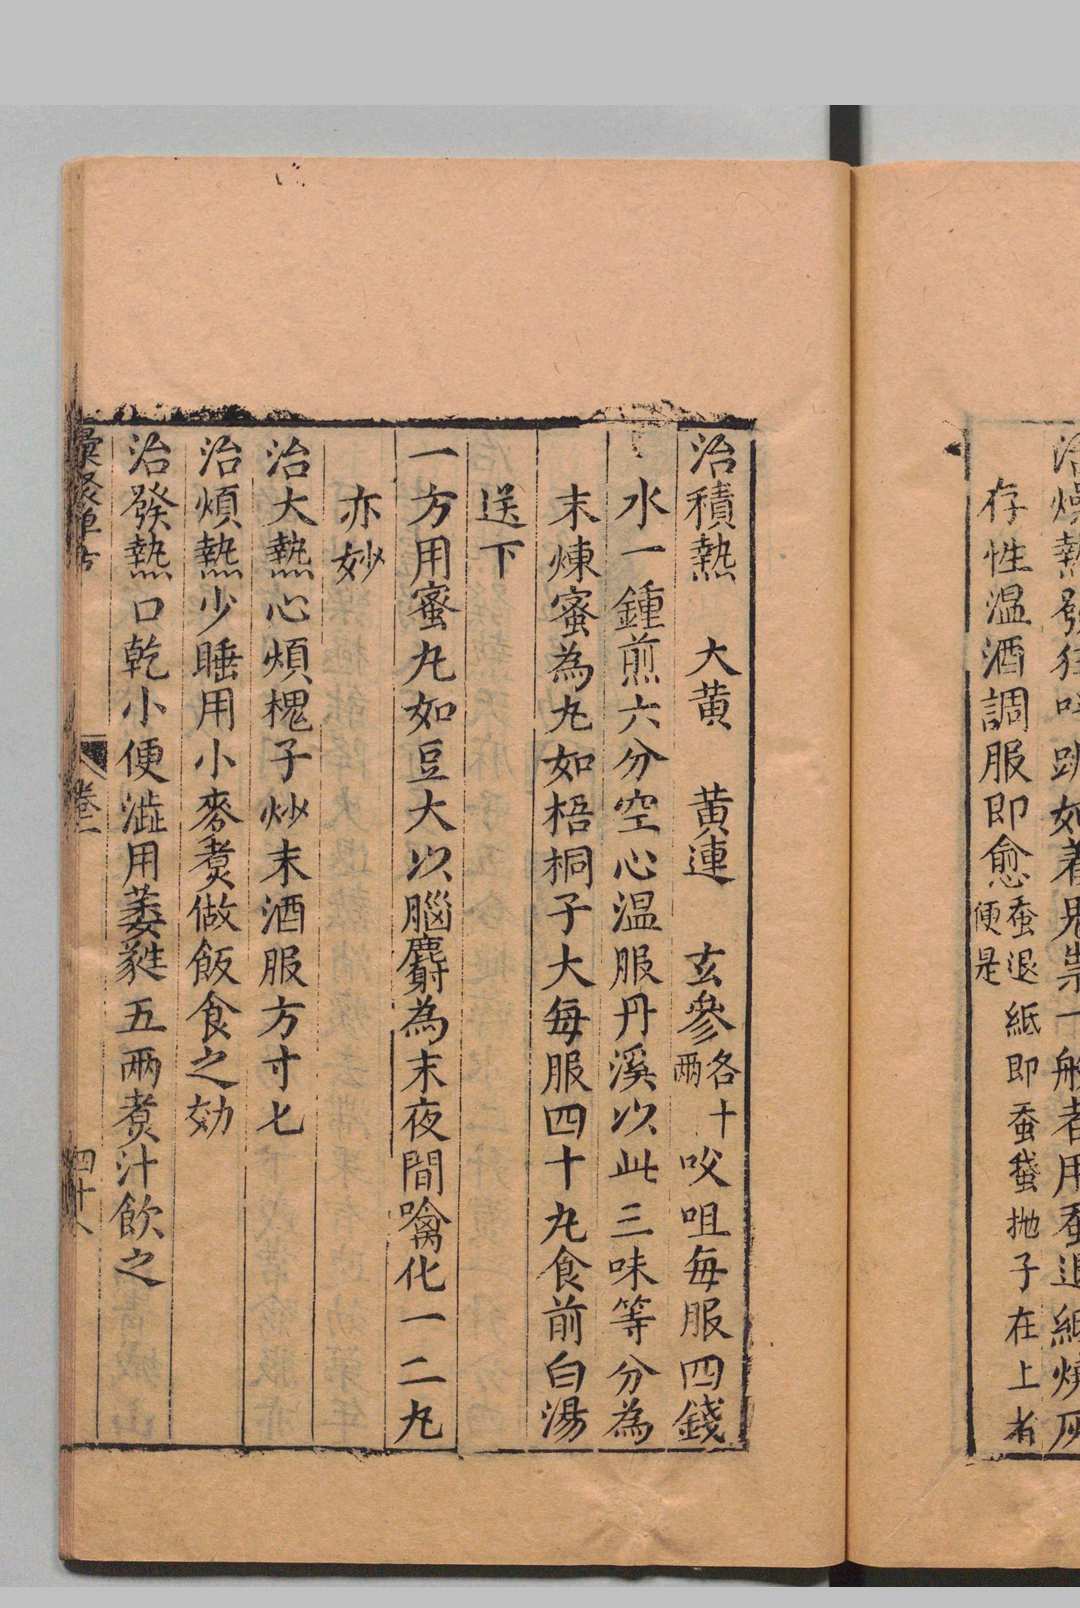 治燥熱發狂呌跳如着鬼祟一般者用蚕退紙燒灰
存性温酒調服即愈蚕退紙即蚕蛾拋子在上者便是
治積熱 大黄 黄連 玄參各十兩 㕮咀每服四錢
水一鍾煎六分空心温服丹溪以此三味等分為
末煉蜜為丸如梧桐子大每服四十丸食前白湯
送下
一方用蜜丸如豆大以腦麝為末夜間噙化一二丸
亦妙
治大熱心煩槐子炒末酒服方寸匕
治煩熱少睡用小麥煮做飯食之効
治發熱口乾小便澁用萎蕤五兩煮汁飲之
彚聚單方 卷二 四十八